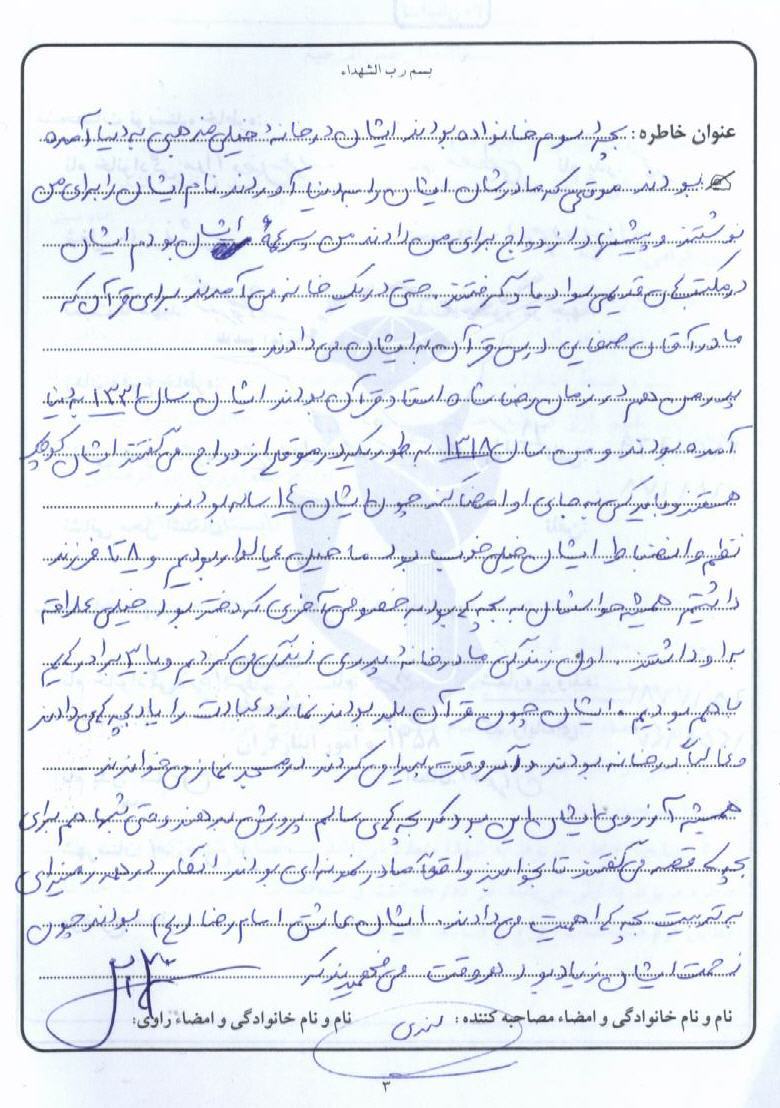 بسم رب الشهداء
عنوان خاطره: بچه سوم خانواده بودند ایشان در خانه خیلی مذهبی به دنیا آمده
بودند موقعی که مادرشان ایشان را به دنیا آوردند نام ایشان را برای من
نوشتند و پیشنهاد ازدواج برای من دادند من پسر عمه ایشان بودم ایشان
در مکتب های قدیمی سواد یاد گرفتند حتی در یک خانه می آمدند برای قرآن که
مادر آقای صفایی درس قرآن به ایشان می دادند.
پدر من هم در زمان رضا شاه استاد قرآن بودند ایشان سال ۱۳۳۱ به دنیا
آمده بودند و من سال ۱۳۱۸ به طوریکه در موقع ازدواج می گفتند ایشان کوچک
هستند و باید کسی به جای او امضا کند چون ایشان ۱۴ ساله بودند.
نظم و انضباط ایشان خیلی خوب بود ما خیلی عیالوار بودیم و ۸ تا فرزند
داشتیم همیشه حواسشان به بچه ها بود به خصوص آخری که دختر بود خیلی علاقه
به او داشتند. اول زندگی ما در خانه پدری زندگی می کردیم و با ۳ برادر هایم
باهم بودیم. ایشان چون قرآن بلد بودند نماز و عبادت را یاد بچه ها می دادند
و غالباً در خانه بودند و آنوقت پیدا می کردند در مسجد نماز می خواندند.
همیشه آرزوی ایشان این بود که بچه های سالم پرورش بدهند و حتی شبها هم برای
بچه ها قصه می گفتند تا بخوابند واقعاً مادر نمونه ای بودند انگار در هر زمینه ای
به تربیت بچه ها اهمیت می دادند. ایشان عاشق امام رضا (ع) بودند چون
زحمت ایشان زیاد بود هر وقت می فهمیدند که
نام و نام خانوادگی و امضاء مصاحبه کننده: نام و نام خانوادگی و امضاء راوی:
۳